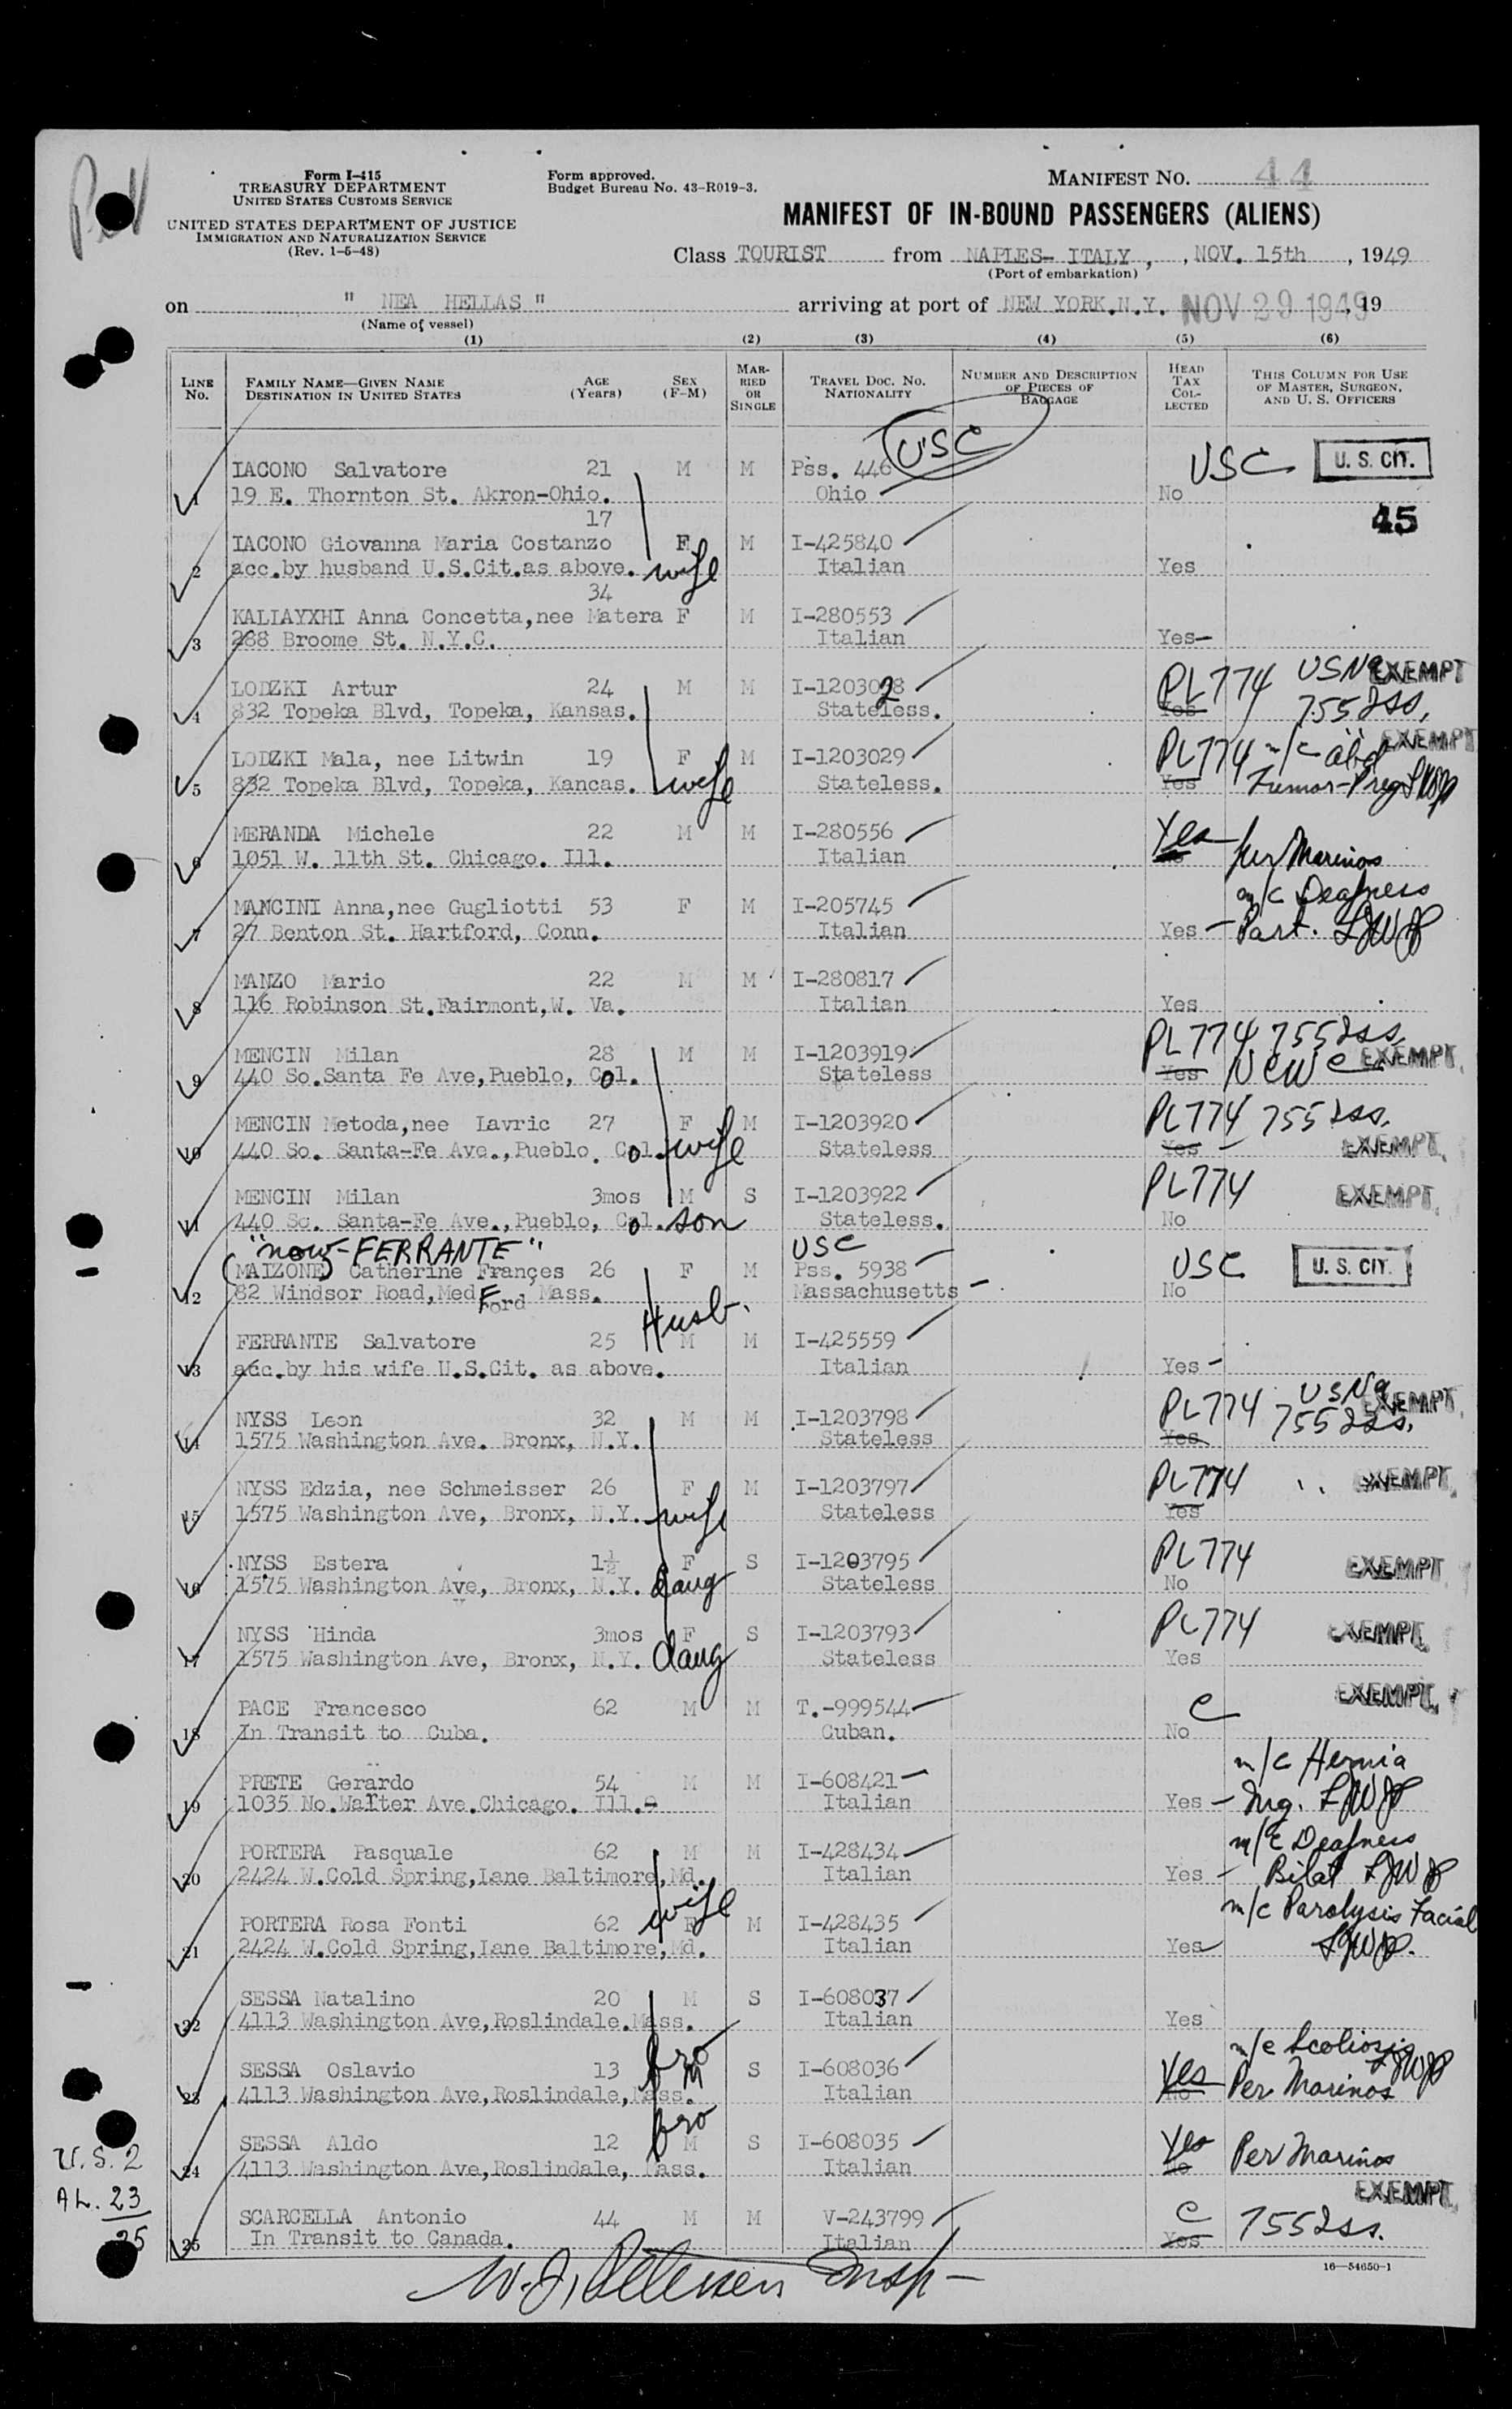 Form I-415
TREASURY DEPARTMENT
UNITED STATES CUSTOMS SERVICE
UNITED STATES DEPARTMENT OF JUSTICE
IMMIGRATION AND NATURALIZATION SERVICE
(Rev. 1-5-48)
Form approved.
Budget Bureau No. 43-R019-3.
MANIFEST NO. 44
MANIFEST OF IN-BOUND PASSENGERS (ALIENS)
Class TOURIST from NAPLES- ITALY, , NOV. 15th , 1949
(Port of embarkation)
on " NEA HELLAS " arriving at port of NEW YORK.N.Y. NOV 29 1949, 19
(Name of vessel)
(1) (2) (3) (4) (5) (6)
LINE NO. FAMILY NAME—GIVEN NAME DESTINATION IN UNITED STATES AGE (Years) SEX (F-M) MARRIED OR SINGLE TRAVEL DOC. NO. NATIONALITY NUMBER AND DESCRIPTION OF PIECES OF BAGGAGE HEAD TAX COLLECTED THIS COLUMN FOR USE OF MASTER, SURGEON, AND U. S. OFFICERS
IACONO Salvatore 21 M M Pss. 446 USC USC U. S. CIT.
1 19 E. Thornton St. Akron-Ohio. Ohio No
17 45
IACONO Giovanna Maria Costanzo F M I-425840
2 acc.by husband U.S.Cit.as above. wife Italian Yes
34
KALIAYXHI Anna Concetta,nee Matera F M I-280553
3 288 Broome St. N.Y.C. Italian Yes-
LODZKI Artur 24 M M I-1203028 PL774 USNa EXEMPT
4 832 Topeka Blvd, Topeka, Kansas. Stateless. Yes 755 2ss.
LODZKI Mala, nee Litwin 19 F M I-1203029 PL774 m/c-abd EXEMPT
5 832 Topeka Blvd, Topeka, Kancas. wife Stateless. Yes Tumor-Preg
MERANDA Michele 22 M M I-280556 Yes
6 1051 W. 11th St. Chicago. Ill. Italian No per Marinos
MANCINI Anna,nee Gugliotti 53 F M I-205745 m/c Deafness
7 27 Benton St. Hartford, Conn. Italian Yes - Part.
MANZO Mario 22 M M I-280817
8 116 Robinson St.Fairmont,W. Va. Italian Yes
MENCIN Milan 28 M M I-1203919 PL774 755 2ss.
9 440 So.Santa Fe Ave,Pueblo, Col. Stateless Yes EXEMPT.
MENCIN Metoda,nee Lavric 27 F M I-1203920 PL774 755 2ss.
10 440 So. Santa-Fe Ave.,Pueblo. Col. wife Stateless Yes - EXEMPT.
MENCIN Milan 3mos M S I-1203922 PL774 EXEMPT.
11 440 So. Santa-Fe Ave.,Pueblo, Col. son Stateless. No
"now-FERRANTE" USC
(MAIZONE) Catherine Françes 26 F M Pss. 5938 USC U. S. CIT.
12 82 Windsor Road,MedFord Mass. Massachusetts - No
Husb.
FERRANTE Salvatore 25 M M I-425559
13 acc.by his wife U.S.Cit. as above. Italian Yes -
NYSS Leon 32 M M I-1203798 PL774 USNa EXEMPT.
14 1575 Washington Ave. Bronx, N.Y. Stateless Yes 755 2ss.
NYSS Edzia, nee Schmeisser 26 F M I-1203797 PL774 " EXEMPT.
15 1575 Washington Ave, Bronx, N.Y. wife Stateless Yes
NYSS Estera 1½ F S I-1203795 PL774 EXEMPT
16 1575 Washington Ave, Bronx, N.Y. daug Stateless No
NYSS Hinda 3mos F S I-1203793 PL774 EXEMPT.
17 1575 Washington Ave, Bronx, N.Y. daug Stateless Yes
PACE Francesco 62 M M T.-999544 C EXEMPT.
18 In Transit to Cuba. Cuban. No
PRETE Gerardo 54 M M I-608421 m/c Hernia
19 1035 No.Walter Ave.Chicago. Ill. Italian Yes - Ing.
PORTERA Pasquale 62 M M I-428434 m/c Deafness
20 2424 W.Cold Spring,Lane Baltimore,Md. Italian Yes - Bilat
PORTERA Rosa Fonti 62 wife F M I-428435 m/c Paralysis Facial
21 2424 W.Cold Spring,Lane Baltimore,Md. Italian Yes
SESSA Natalino 20 M S I-608037
22 4113 Washington Ave,Roslindale.Mass. Italian Yes
SESSA Oslavio 13 bro M S I-608036 Yes m/c Scoliosis
23 4113 Washington Ave,Roslindale,Mass. Italian No Per Marinos
SESSA Aldo 12 bro M S I-608035 Yes Per Marinos
24 4113 Washington Ave,Roslindale, Mass. Italian No
SCARCELLA Antonio 44 M M V-243799 C EXEMPT.
25 In Transit to Canada. Italian Yes 755 2ss.
U.S. 2
AL. 23
25
W.J. Petersen Insp-
16—54650-1